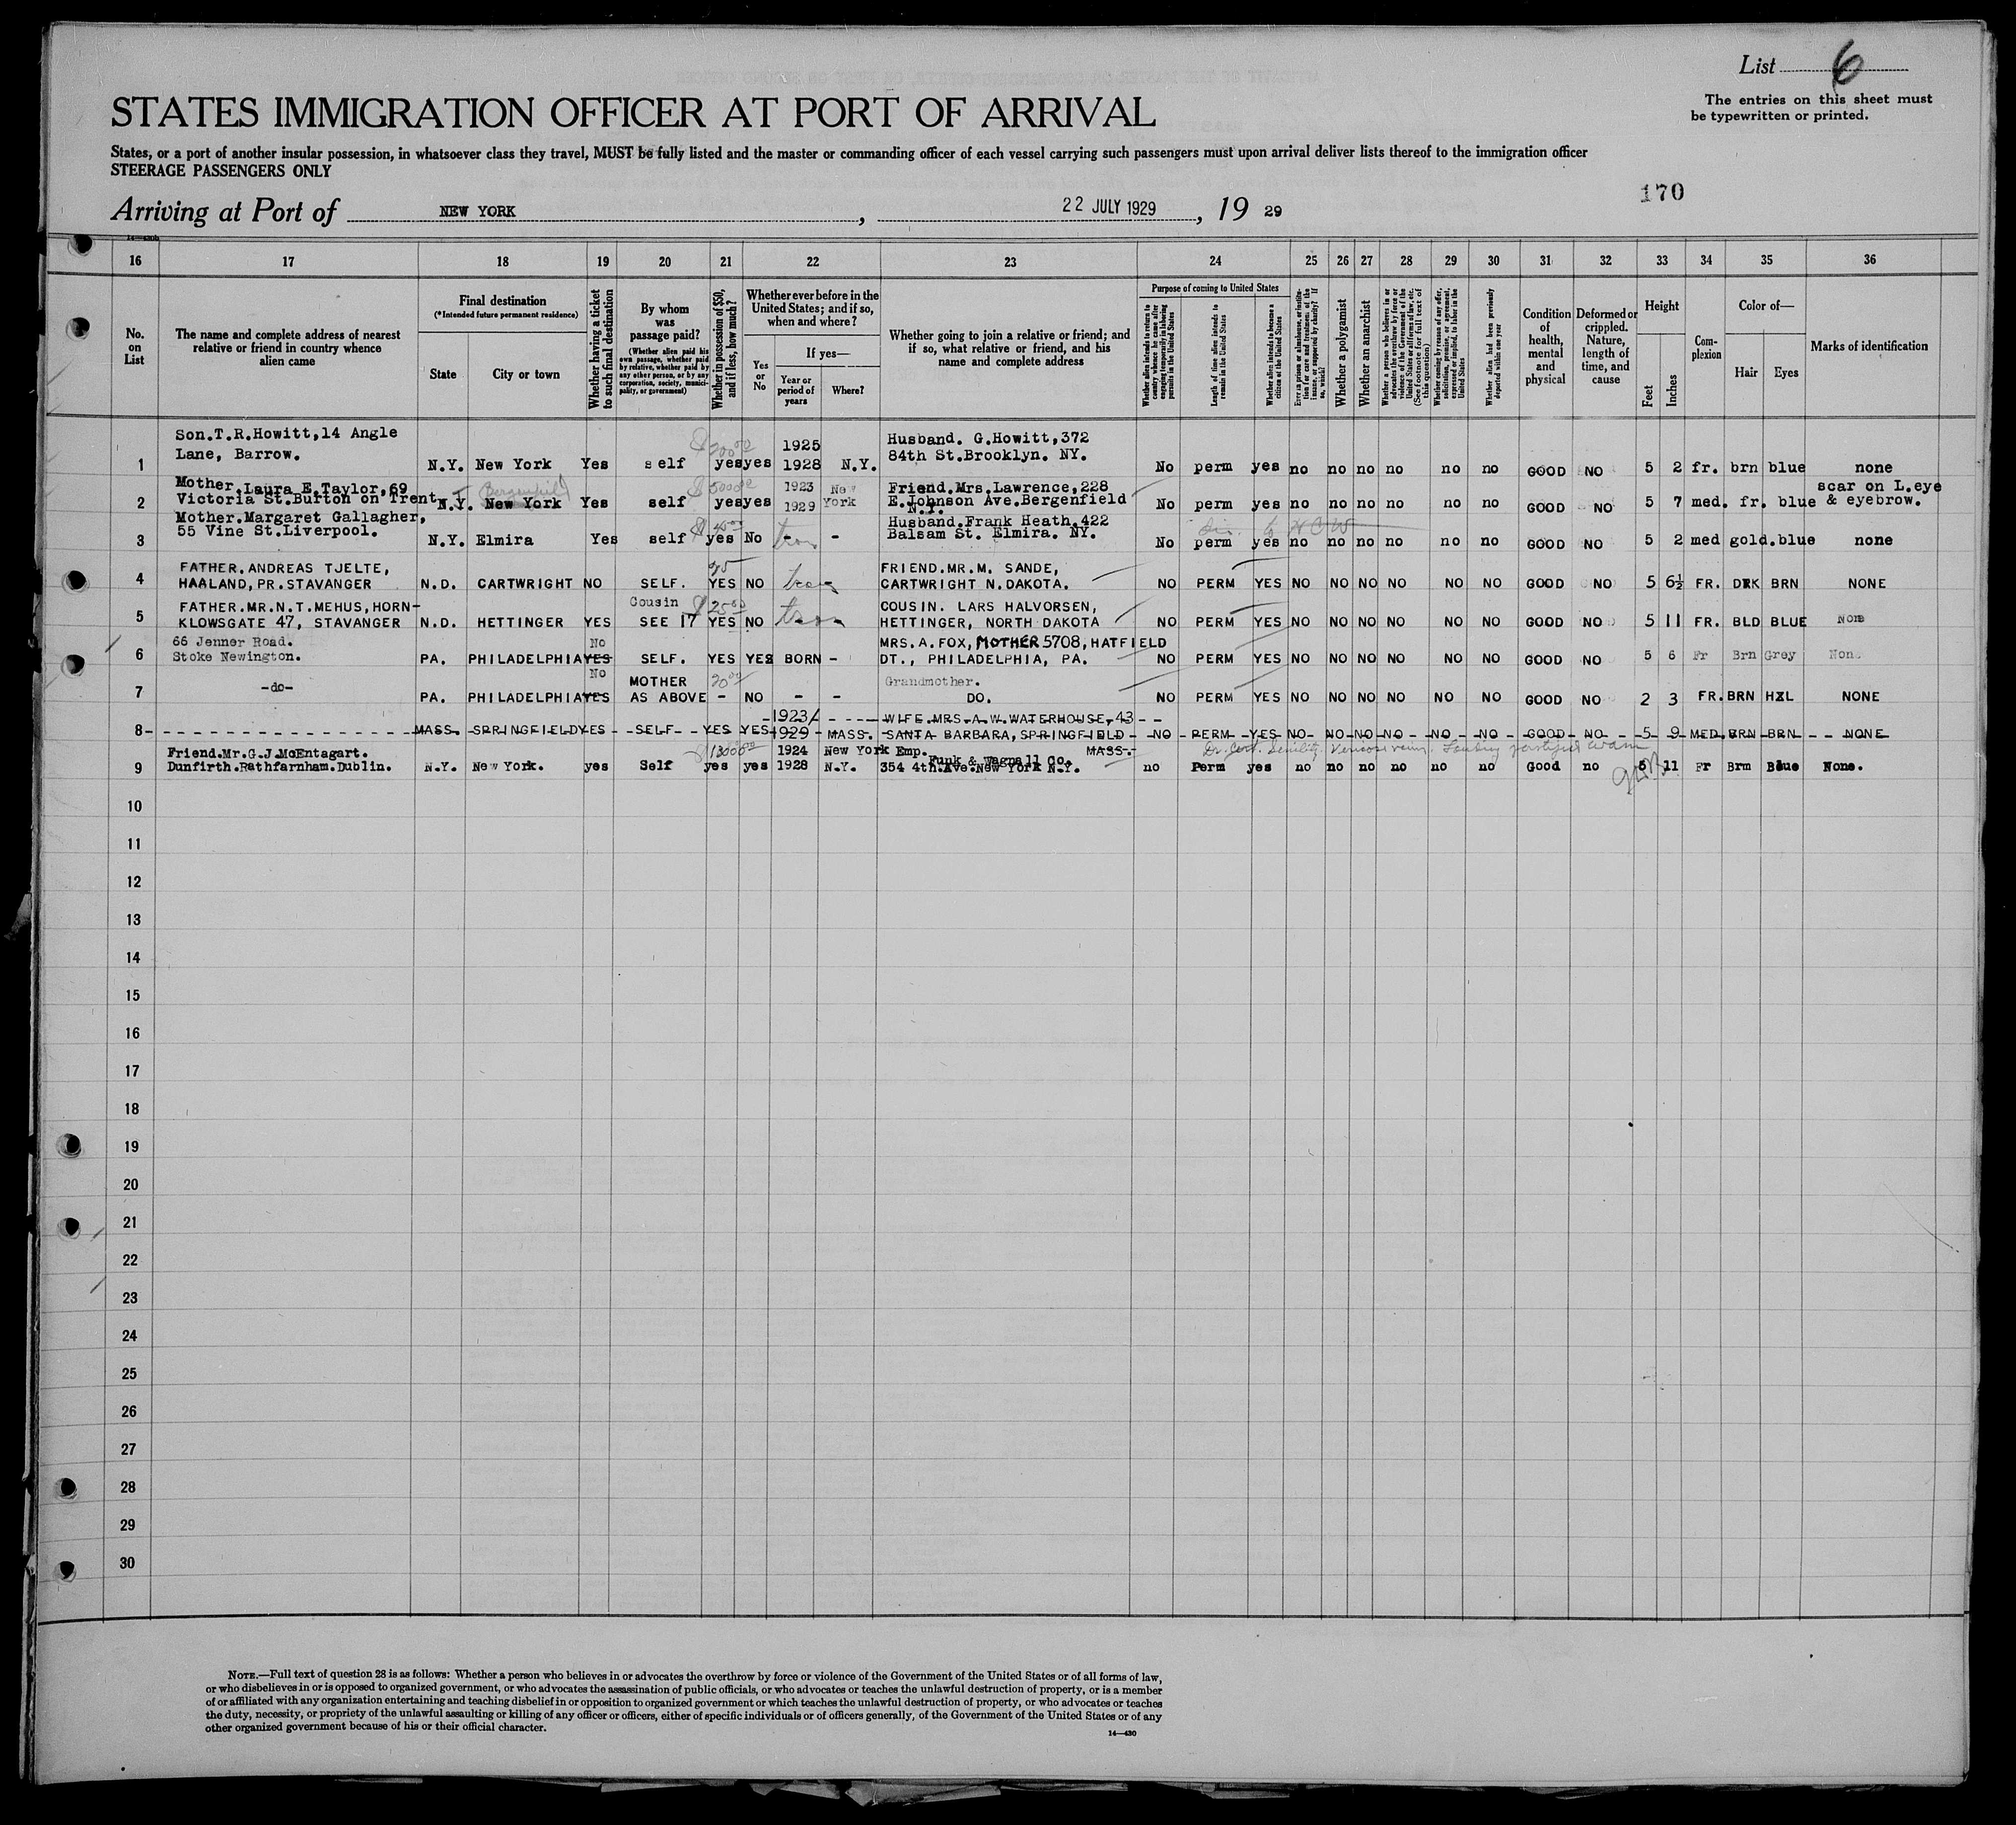 List 6
The entries on this sheet must
be typewritten or printed.
STATES IMMIGRATION OFFICER AT PORT OF ARRIVAL
States, or a port of another insular possession, in whatsoever class they travel, MUST be fully listed and the master or commanding officer of each vessel carrying such passengers must upon arrival deliver lists thereof to the immigration officer
STEERAGE PASSENGERS ONLY
170
Arriving at Port of NEW YORK, 22 JULY 1929, 19 29
16 17 18 19 20 21 22 23 24 25 26 27 28 29 30 31 32 33 34 35 36
No. on List
The name and complete address of nearest relative or friend in country whence alien came
Final destination
(*Intended future permanent residence)
State
City or town
Whether having a ticket to such final destination
By whom was passage paid?
(Whether alien paid his own passage, whether paid by relative, whether paid by any other person, or by any corporation, society, municipality, or government)
Whether in possession of $50, and if less, how much?
Whether ever before in the United States; and if so, when and where?
Yes or No
If yes—
Year or period of years
Where?
Whether going to join a relative or friend; and if so, what relative or friend, and his name and complete address
Purpose of coming to United States
Whether alien intends to return to country whence he came after engaging temporarily in laboring pursuits in the United States
Length of time alien intends to remain in the United States
Whether alien intends to become a citizen of the United States
Ever in prison or almshouse, or institution for care and treatment of the insane, or supported by charity? If so, which?
Whether a polygamist
Whether an anarchist
Whether a person who believes in or advocates the overthrow by force or violence of the Government of the United States or all forms of law, etc. (See footnote for full text of this question)
Whether coming by reason of any offer, solicitation, promise, or agreement, expressed or implied, to labor in the United States
Whether alien had been previously deported within one year
Condition of health, mental and physical
Deformed or crippled. Nature, length of time, and cause
Height
Feet
Inches
Complexion
Color of—
Hair
Eyes
Marks of identification
Son.T.R.Howitt,14 Angle
Lane, Barrow.
1 N.Y. New York Yes self yes yes 1925 1928 N.Y.
Husband. G.Howitt,372
84th St.Brooklyn. NY.
No perm yes no no no no no no GOOD NO 5 2 fr. brn blue none
Mother.Laura E.Taylor.69
Victoria St.Burton on Trent
2 N.Y. Bergenfield New York Yes self $5000 yes yes 1923 1929 New York
Friend.Mrs.Lawrence,228
E.Johnson Ave.Bergenfield
N.Y.
No perm yes no no no no no no GOOD NO 5 7 med. fr. blue scar on L.eye
& eyebrow.
Mother.Margaret Gallagher,
55 Vine St.Liverpool.
3 N.Y. Elmira Yes self yes No - -
Husband.Frank Heath.422
Balsam St. Elmira. NY.
No perm yes no no no no no no GOOD NO 5 2 med gold.blue none
FATHER.ANDREAS TJELTE,
HAALAND,PR.STAVANGER
4 N.D. CARTWRIGHT NO SELF. YES NO
FRIEND.MR.M. SANDE,
CARTWRIGHT N.DAKOTA.
NO PERM YES NO NO NO NO NO NO GOOD NO 5 6½ FR. DRK BRN NONE
FATHER.MR.N.T.MEHUS,HORN-
KLOWSGATE 47, STAVANGER
5 N.D. HETTINGER YES Cousin SEE 17 $25 YES NO
COUSIN. LARS HALVORSEN,
HETTINGER, NORTH DAKOTA
NO PERM YES NO NO NO NO NO NO GOOD NO 5 11 FR. BLD BLUE None
66 Jenner Road.
Stoke Newington.
6 PA. PHILADELPHIA No YES SELF. YES YES BORN -
MRS.A.FOX, MOTHER 5708,HATFIELD
DT., PHILADELPHIA, PA.
NO PERM YES NO NO NO NO NO NO GOOD NO 5 6 Fr Brn Grey None
7 -do- PA. PHILADELPHIA No YES MOTHER AS ABOVE - NO - -
Grandmother.
DO.
NO PERM YES NO NO NO NO NO NO GOOD NO 2 3 FR. BRN HZL NONE
8 MASS. SPRINGFIELD YES SELF YES YES 1923/ 1929 MASS.
WIFE.MRS.A.W.WATERHOUSE,43
SANTA BARBARA,SPRINGFIELD
MASS.
NO PERM YES NO NO NO NO NO NO GOOD NO 5 9 MED.BRN BRN NONE
Friend.Mr.G.J.McEntagart.
Dunfirth.Rathfarnham.Dublin.
9 N.Y. New York. yes Self yes yes 1924 1928 New York N.Y.
Emp.
Funk & Wagnall Co.
354 4th.Ave.New York N.Y.
no Perm yes no no no no no no Good no 5 11 Fr Brm Blue None.
10
11
12
13
14
15
16
17
18
19
20
21
22
23
24
25
26
27
28
29
30
NOTE.—Full text of question 28 is as follows: Whether a person who believes in or advocates the overthrow by force or violence of the Government of the United States or of all forms of law,
or who disbelieves in or is opposed to organized government, or who advocates the assassination of public officials, or who advocates or teaches the unlawful destruction of property, or is a member
of or affiliated with any organization entertaining and teaching disbelief in or opposition to organized government or which teaches the unlawful destruction of property, or who advocates or teaches
the duty, necessity, or propriety of the unlawful assaulting or killing of any officer or officers, either of specific individuals or of officers generally, of the Government of the United States or of any
other organized government because of his or their official character.
14—430